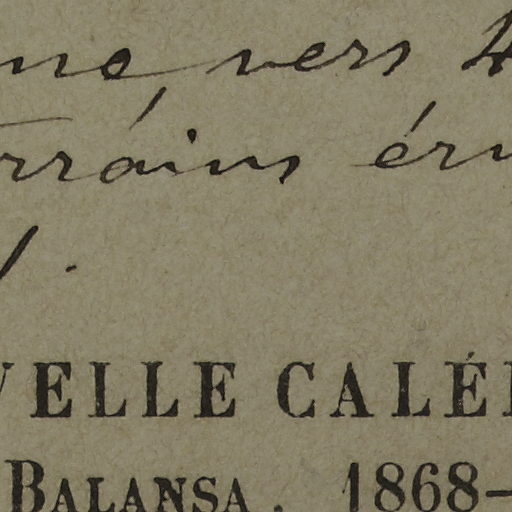 me, vers 4
terrains éru
/.
VELLE CALÉD
BALANSA. 1868-